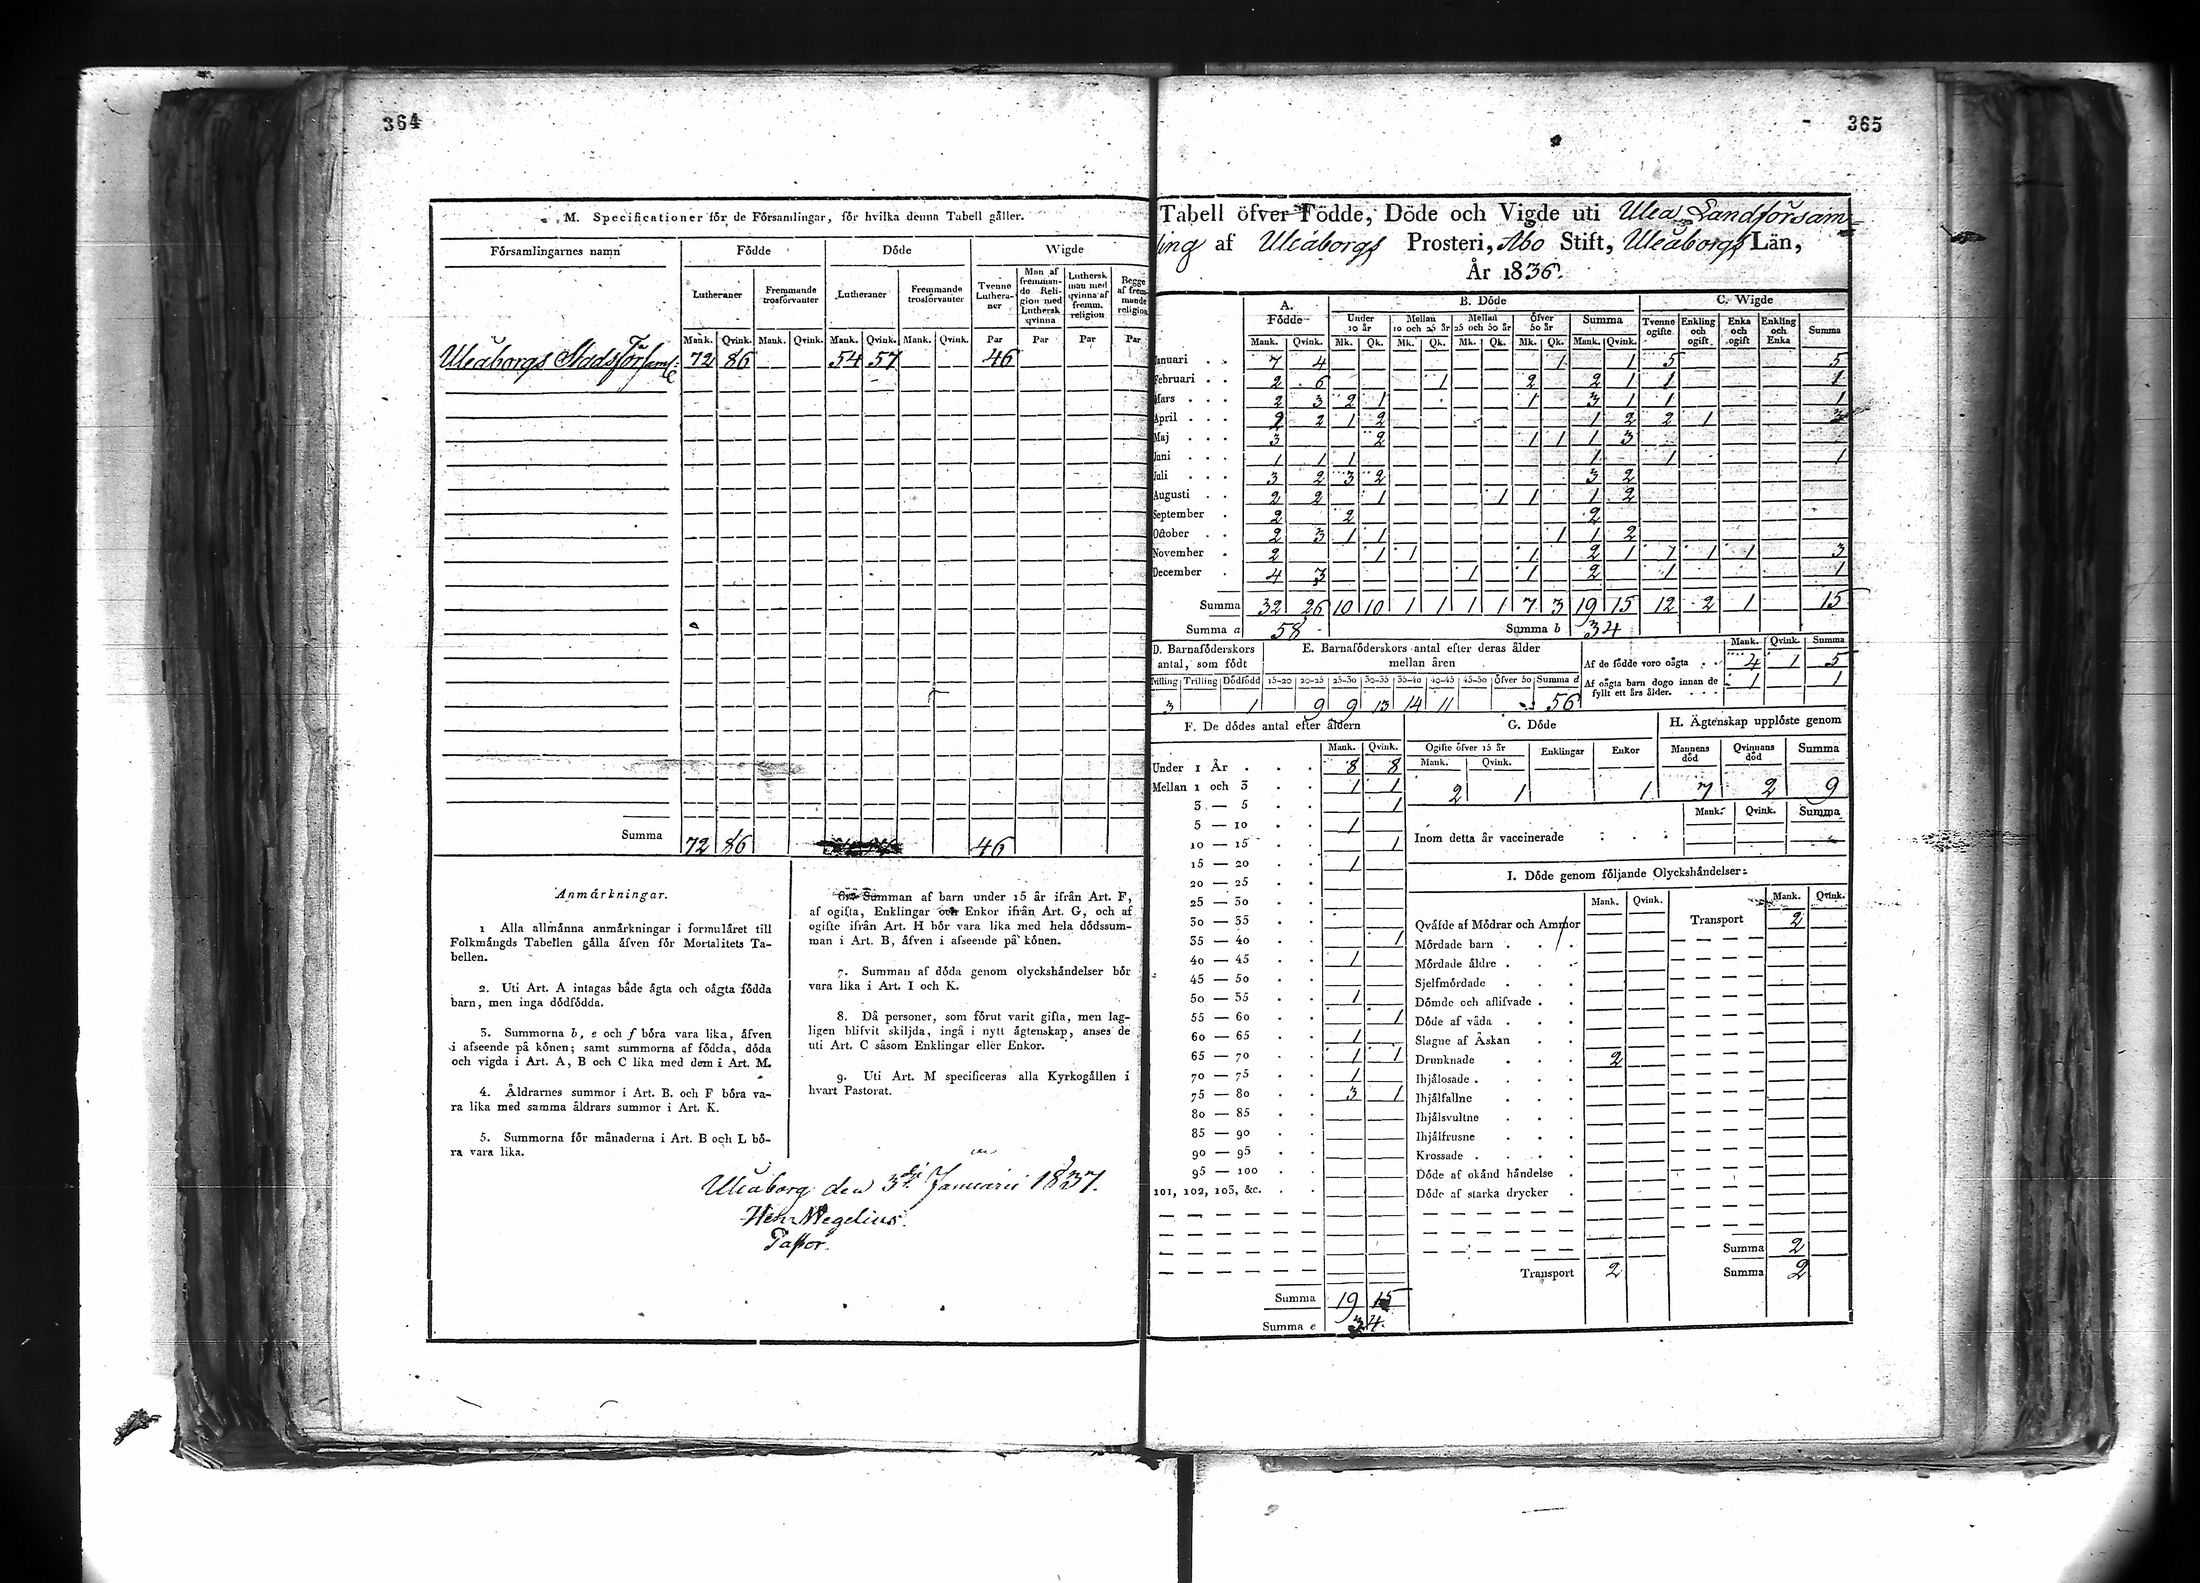 364
M. Specificationer för de Församlingar, för hvilka denna Tabell gäller.
Församlingarnes namn | Födde | Döde | Wigde
Lutheraner | Fremmande trosförvanter | Lutheraner | Fremmande trosförvanter | Tvenne Lutheraner | Man af fremmande Religion med Luthersk qvinna | Luthersk man med qvinna af fremm. religion | Begge af fremmande religion
Mank. | Qvink. | Mank. | Qvink. | Mank. | Qvink. | Mank. | Qvink. | Par | Par | Par | Par
Uleåborgs Stads Församl: 72 86 54 57 46
Summa 72 86 46
Anmärkningar.
1 Alla allmänna anmärkningar i formuläret till
Folkmängds Tabellen gälla äfven för Mortalitets Ta-
bellen.
2. Uti Art. A intagas både ägta och oägta födda
barn, men inga dödfödda.
3. Summorna b, e och f böra vara lika, äfven
i afseende på könen; samt summorna af födda, döda
och vigda i Art. A, B och C lika med dem i Art. M.
4. Åldrarnes summor i Art. B. och F böra va-
ra lika med samma åldrars summor i Art. K.
5. Summorna för månaderna i Art. B och L bö-
ra vara lika.
6. Summan af barn under 15 år ifrån Art. F,
af ogifta, Enklingar och Enkor ifrån Art. G, och af
ogifte ifrån Art. H bör vara lika med hela dödssum-
man i Art. B, äfven i afseende på könen.
7. Summan af döda genom olyckshändelser bör
vara lika i Art. I och K.
8. Då personer, som förut varit gifta, men lag-
ligen blifvit skiljda, ingå i nytt ägtenskap, anses de
uti Art. C såsom Enklingar eller Enkor.
9. Uti Art. M specificeras alla Kyrkogällen i
hvart Pastorat.
Uleåborg den 3die Januarii 1837.
Henr Wegelius.
Pastor.
365
Tabell öfver Födde, Döde och Vigde uti Uleå Landsförsam=
ling af Uleåborgs Prosteri, Åbo Stift, Uleåborgs Län,
År 1836.
A. Födde | B. Döde | C. Wigde
Under 10 år | Mellan 10 och 25 år | Mellan 25 och 50 år | Öfver 50 år | Summa | Tvenne ogifte | Enkling och ogift | Enka och ogift | Enkling och Enka | Summa
Mank. | Qvink. | Mk. | Qk. | Mk. | Qk. | Mk. | Qk. | Mk. | Qk. | Mank. | Qvink.
Januari 7 4 1 1 5 5
Februari 2 6 1 2 2 1 1 1
Mars 2 3 2 1 1 3 1 1 1
April 2 2 1 2 1 2 2 1 3
Maj 3 2 1 1 1 3
Juni 1 1 1 1 1 1
Juli 3 2 3 2 3 2
Augusti 2 2 1 1 1 1 2
September 2 2 2
October 2 3 1 1 1 1 2
November 2 1 1 1 2 1 1 1 1 3
December 4 3 1 1 2 1 1
Summa 32 26 10 10 1 1 1 1 7 3 19 15 12 2 1 15
Summa a 58 Summa b 34
D. Barnaföderskors antal, som födt
Tvilling | Trilling | Dödfödd
3 1
E. Barnaföderskors antal efter deras ålder mellan åren
15-20 | 20-25 | 25-30 | 30-35 | 35-40 | 40-45 | 45-50 | öfver 50 | Summa d
9 9 13 14 11 56
Mank. | Qvink. | Summa
Af de födde voro oägta 4 1 5
Af oägta barn dogo innan de fyllt ett års ålder. 1 1
F. De dödes antal efter åldern
Mank. | Qvink.
Under 1 År 8 8
Mellan 1 och 3 1 1
3 — 5 1
5 — 10 1
10 — 15 1
15 — 20 1
20 — 25
25 — 30
30 — 35
35 — 40 1
40 — 45 1
45 — 50
50 — 55 1
55 — 60 1
60 — 65 1
65 — 70 1 1
70 — 75 1
75 — 80 3 1
80 — 85
85 — 90
90 — 95
95 — 100
101, 102, 103, &c.
Summa 19 15
Summa e 34.
G. Döde
Ogifte öfver 15 år | Enklingar | Enkor
Mank. | Qvink.
2 1 1
H. Ägtenskap upplöste genom
Mannens död | Qvinnans död | Summa
7 2 9
Mank. | Qvink. | Summa
Inom detta år vaccinerade
I. Döde genom följande Olyckshändelser:
Mank. | Qvink. | Mank. | Qvink.
Qväfde af Mödrar och Ammor
Mördade barn
Mördade äldre
Sjelfmördade
Dömde och aflifvade
Döde af våda
Slagne af Åskan
Drunknade 2
Ihjälosade
Ihjälfallne
Ihjälsvultne
Ihjälfrusne
Krossade
Döde af okänd händelse
Döde af starka drycker
Transport 2
Transport 2
Summa 2
Summa 2